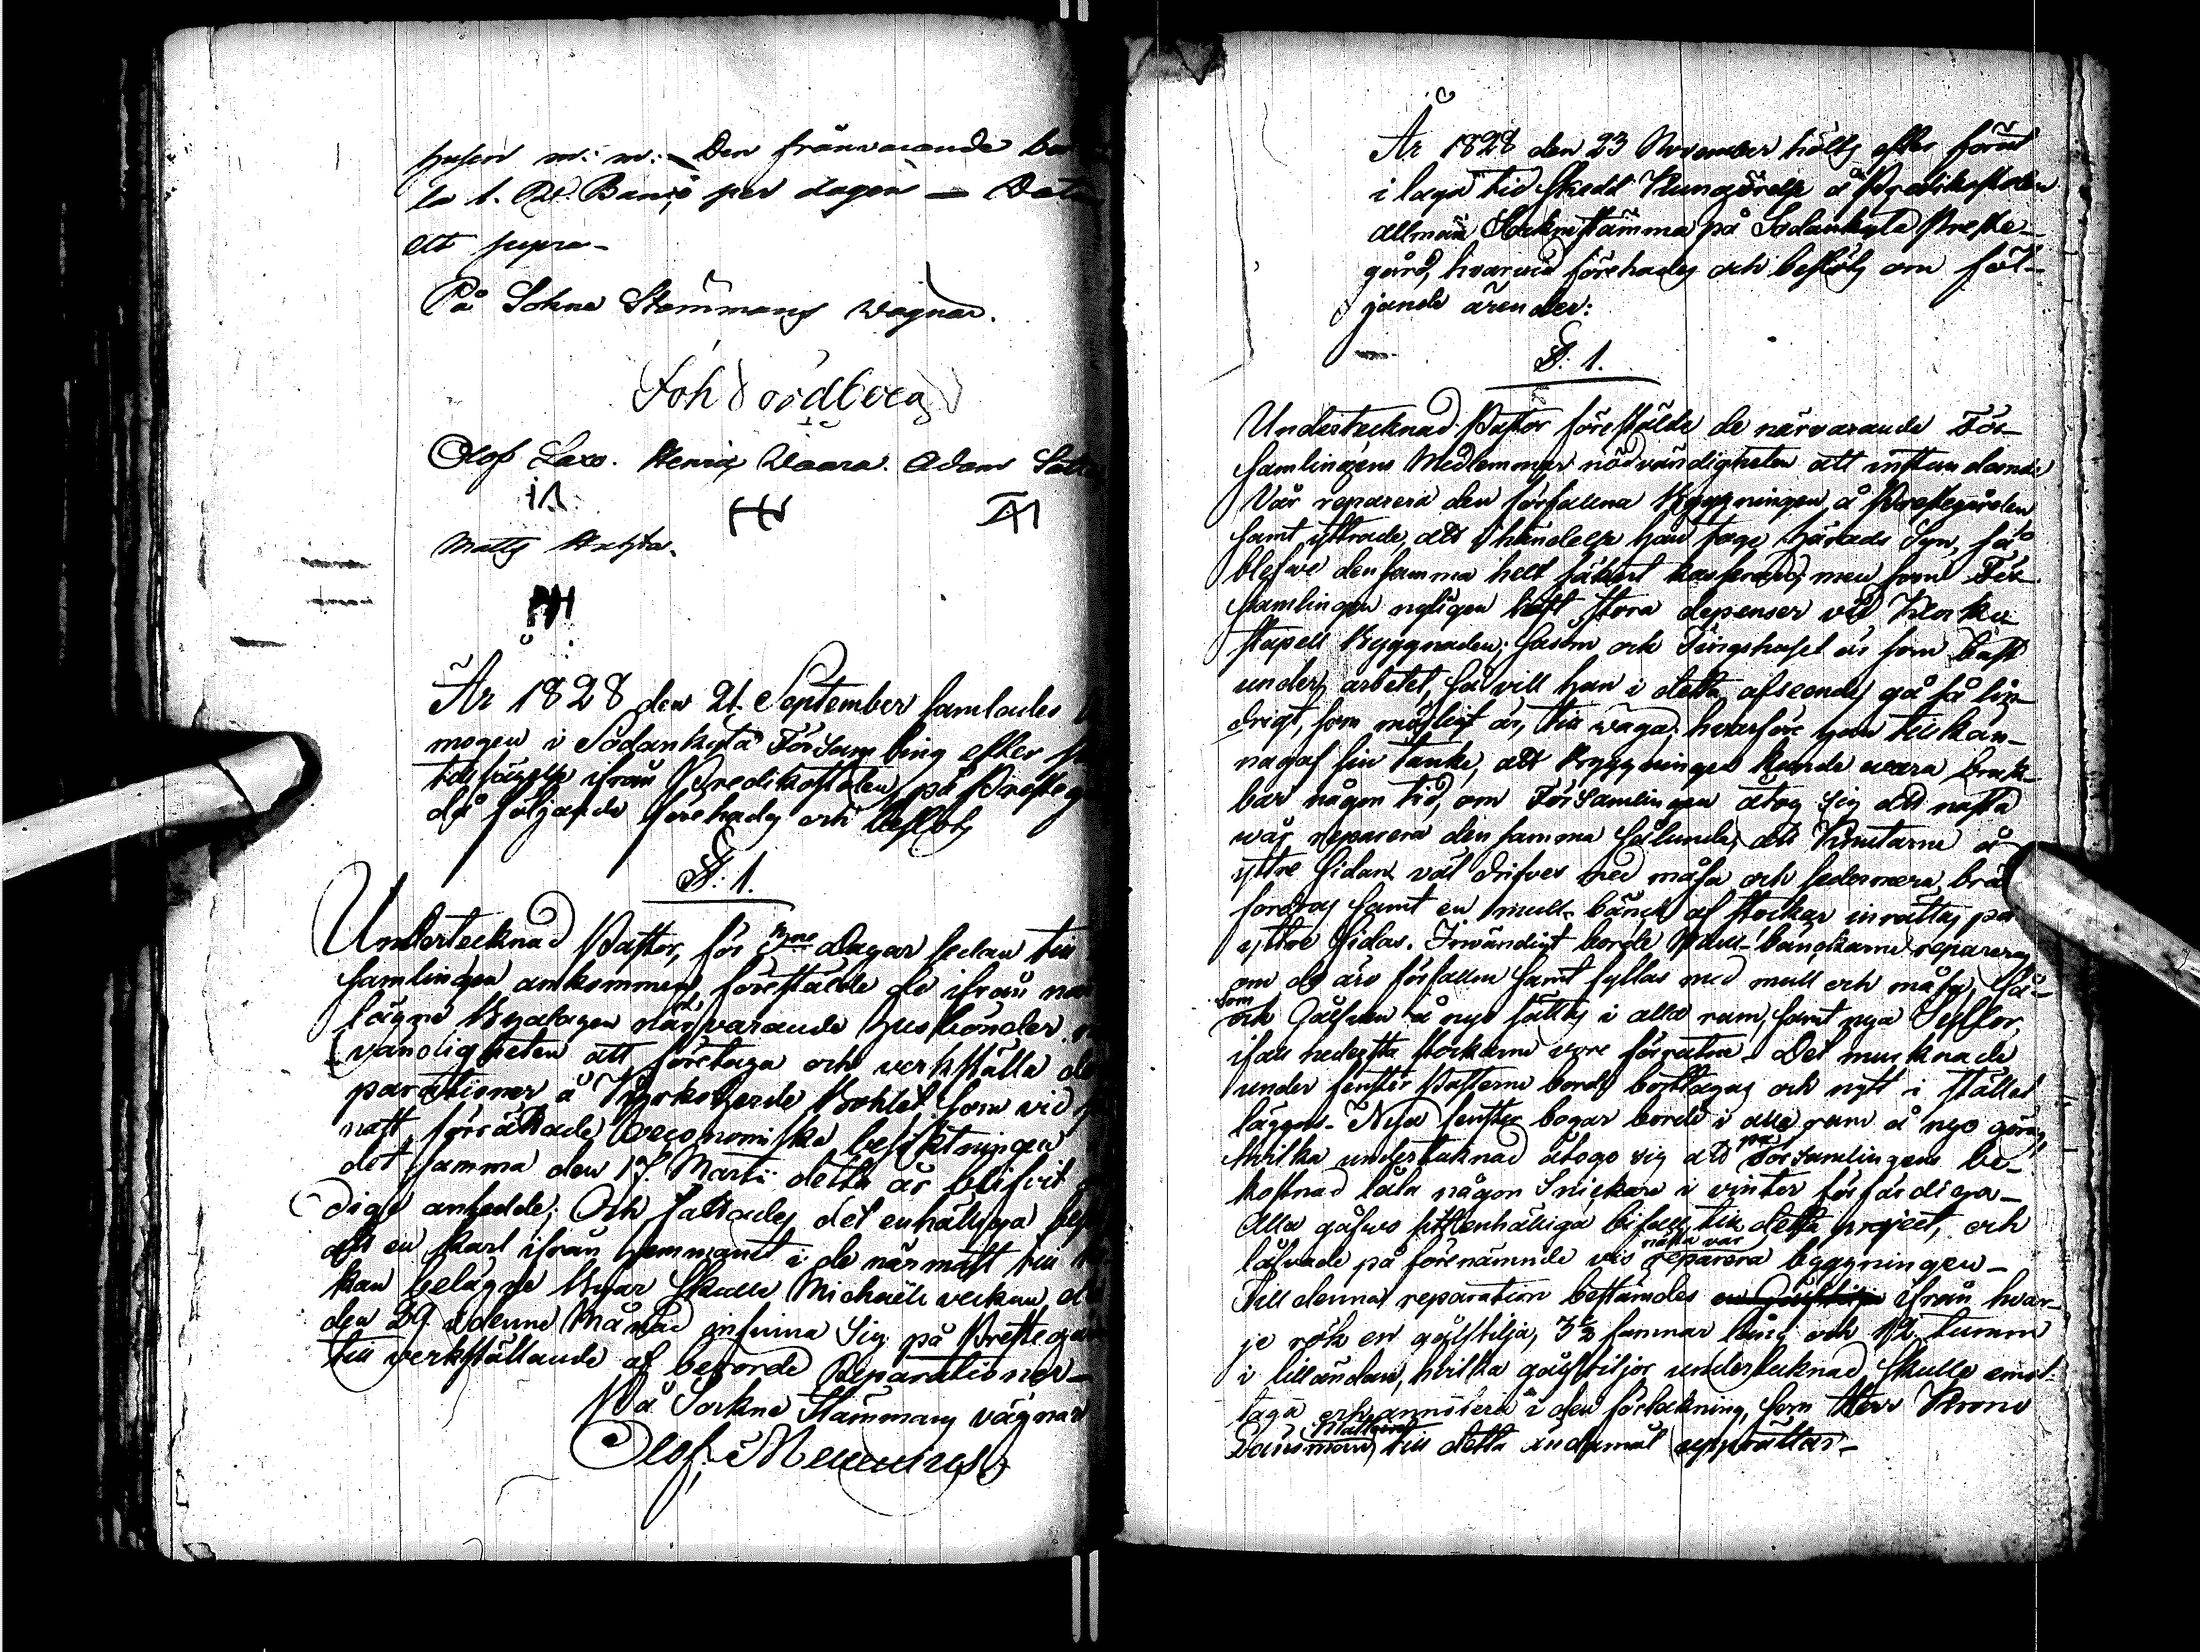 m: m: Den frånvarande
1. Rd. Banco per dagen — Dat
Ut supra —
På Sokne Stemmans Vägnar.
Joh Nordberg
Olof Laxo. Henric Waara. Adam
HW
Matts
MH
År 1828 den 21 September samlades
mogen i Sodankylä Församling efter
ifrån Predikostolen på Presteg
då följande förehades och beslöts
§. 1.
Undertecknad Pastor, för dagar sedan till
samlingen ankommen, förestälde de ifrån när
lägne Byalagen närvarande husbönder
vändigheten att företaga och verkställa de
parationer å Kyrkoherde Bohlet som vid
näst förrättade Oeconomiska besiktningen
det samma den 17 Martii detta år blifvit
ansedde; Och fattades det enhälliga
att en karl ifrån hemmanet i de närmast till
kan belägne Byar skulle Michaëli veckan
den 29 i denne Månad infinna sig på Prestegå
till verkställande af berörde Reparationer —
På Sockne Stämmans vägnar
Olof
År 1828 den 23 November hölts efter förut
i laga tid skedd Kungörelse å Predikstolen
allmän Sockenstämma på Sodankylä Preste-
gård, hvarvid förehades och beslöts om föl-
jande ärender:
§. 1.
Undertecknad Pastor förestälde de närvarande För-
samlingens Medlemmar nödvändigheten att instundande
Vår reparera den förfallna Byggningen å Prestegården
samt yttrade, att i händelse han tage Härads Syn, så
blefve densamma helt säkert kasserad; men som För-
samlingen nyligen haft stora depenser vid Klocku
stapels Byggnaden; Såsom och Tingshuset är som bäst
under arbetet, så vill han i detta afseende gå så lin-
drigt, som möjligt är, till väga; hvarföre han tillkän-
nagaf sin tanke, att Byggningen kunde vara bruk-
bar någon tid, om Församlingen åtog sig att nästa
vår reparera den samma sålunda, att Knutarne å
yttre sidan väl drifves med måsa och sedermera bräd
fordras samt en mull-bänck af stockar inrättas på
yttre sidan. Invändigt borde Mull-bänckarne repareras
om de äro förfallen samt fyllas med mull och måsa, Så-
som
och Gålfven å nyo sättas i alla rum, samt nya Syllor,
ifall nedersta stockarne vore förruttna. Det murknade
under fenster Pasterne borde borttagas och nytt i stället
läggas. Nya fenster bogar borde i alla rum å nyo göras,
på
hvilka undertecknad åtogo sig att Församlingens be-
kostnad låta någon Snickare i vinter förfärdiga —
Alla gåfvo sitt enhälliga bifall till detta project, och
nästa vår
låfvade på förenämnde vis reparera byggningen —
Till denna reparation bestämdes ifrån hvar-
je rök en gålftilja, 3½ famnar lång och 12 tumm
i lilländan, hvilka gålftiljor undertecknad skulle emot-
taga och annotera i den förtekning, som Herr Krono
Länsman till detta ändamål upprättar —